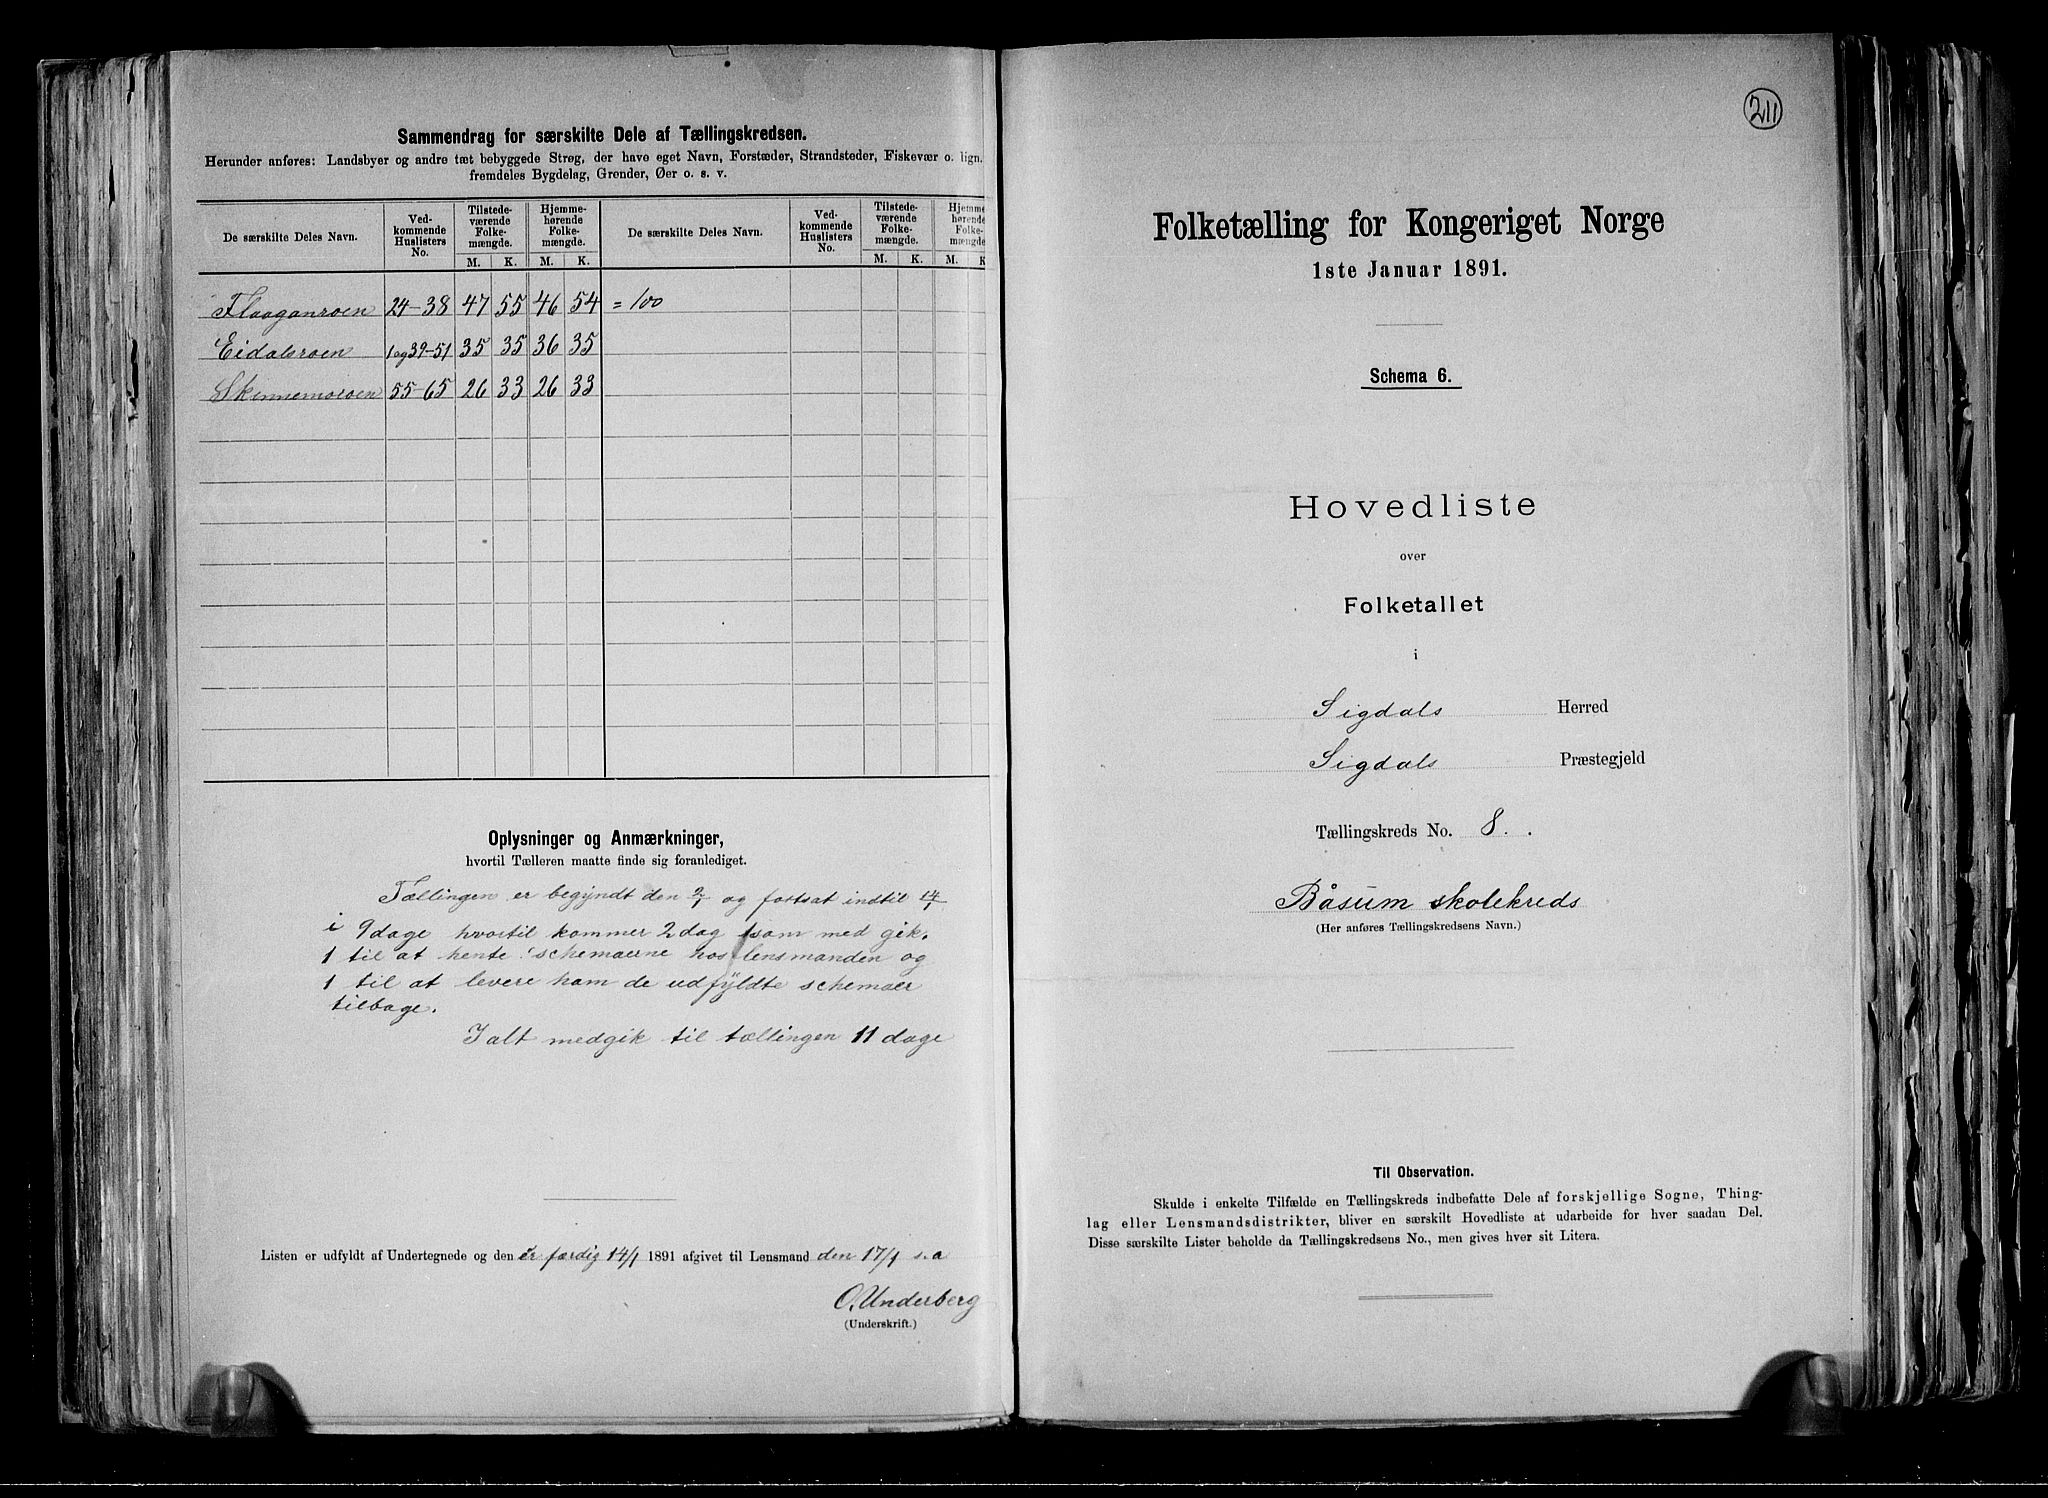 Sammendrag for særskilte Dele af Tællingskredsen.
Herunder anføres: Landsbyer og andre tæt bebyggede Strøg, der have eget Navn, Forstæder, Strandsteder, Fiskevær o. lign.
fremdeles Bygdelag, Grender, Øer o. s. v.
De særskilte Deles Navn. Ved-kommende Huslisters No. Tilstede-værende Folke-mængde. Hjemme-hørende Folke-mængde. De særskilte Deles Navn. Ved-kommende Huslisters No. Tilstede-værende Folke-mængde. Hjemme-hørende Folke-mængde.
M. K. M. K. M. K. M. K
Flaaganroen 24-38 47 55 46 54 = 100
Eidalsroen 1 og 39-51 35 35 36 35
Skinnemoroen 55-65 26 33 26 33
Oplysninger og Anmærkninger,
hvortil Tælleren maatte finde sig foranlediget.
Tællingen er begyndt den 2/1 og fortsat indtil 14/1
i 9 dage hvortil kommer 2 dag som med gik.
1 til at hente schemaerne hos lensmanden og
1 til at levere ham de udfyldte schemaer
tilbage.
I alt medgik til tællingen 11 dage
Listen er udfyldt af Undertegnede og den er færdig 14/1 1891 afgivet til Lensmand den 17/1 s.a
O. Underberg
(Underskrift.)
211
Folketælling for Kongeriget Norge
1ste Januar 1891.
Schema 6.
Hovedliste
over
Folketallet
i
Sigdals Herred
Sigdals Præstegjeld
Tællingskreds No. 8.
Båsum skolekreds
(Her anføres Tællingskredsens Navn.)
Til Observation.
Skulde i enkelte Tilfælde en Tællingskreds indbefatte Dele af forskjellige Sogne, Thing-
lag eller Lensmandsdistrikter, bliver en særskilt Hovedliste at udarbeide for hver saadan Del.
Disse særskilte Lister beholde da Tællingskredsens No., men gives hver sit Litera.